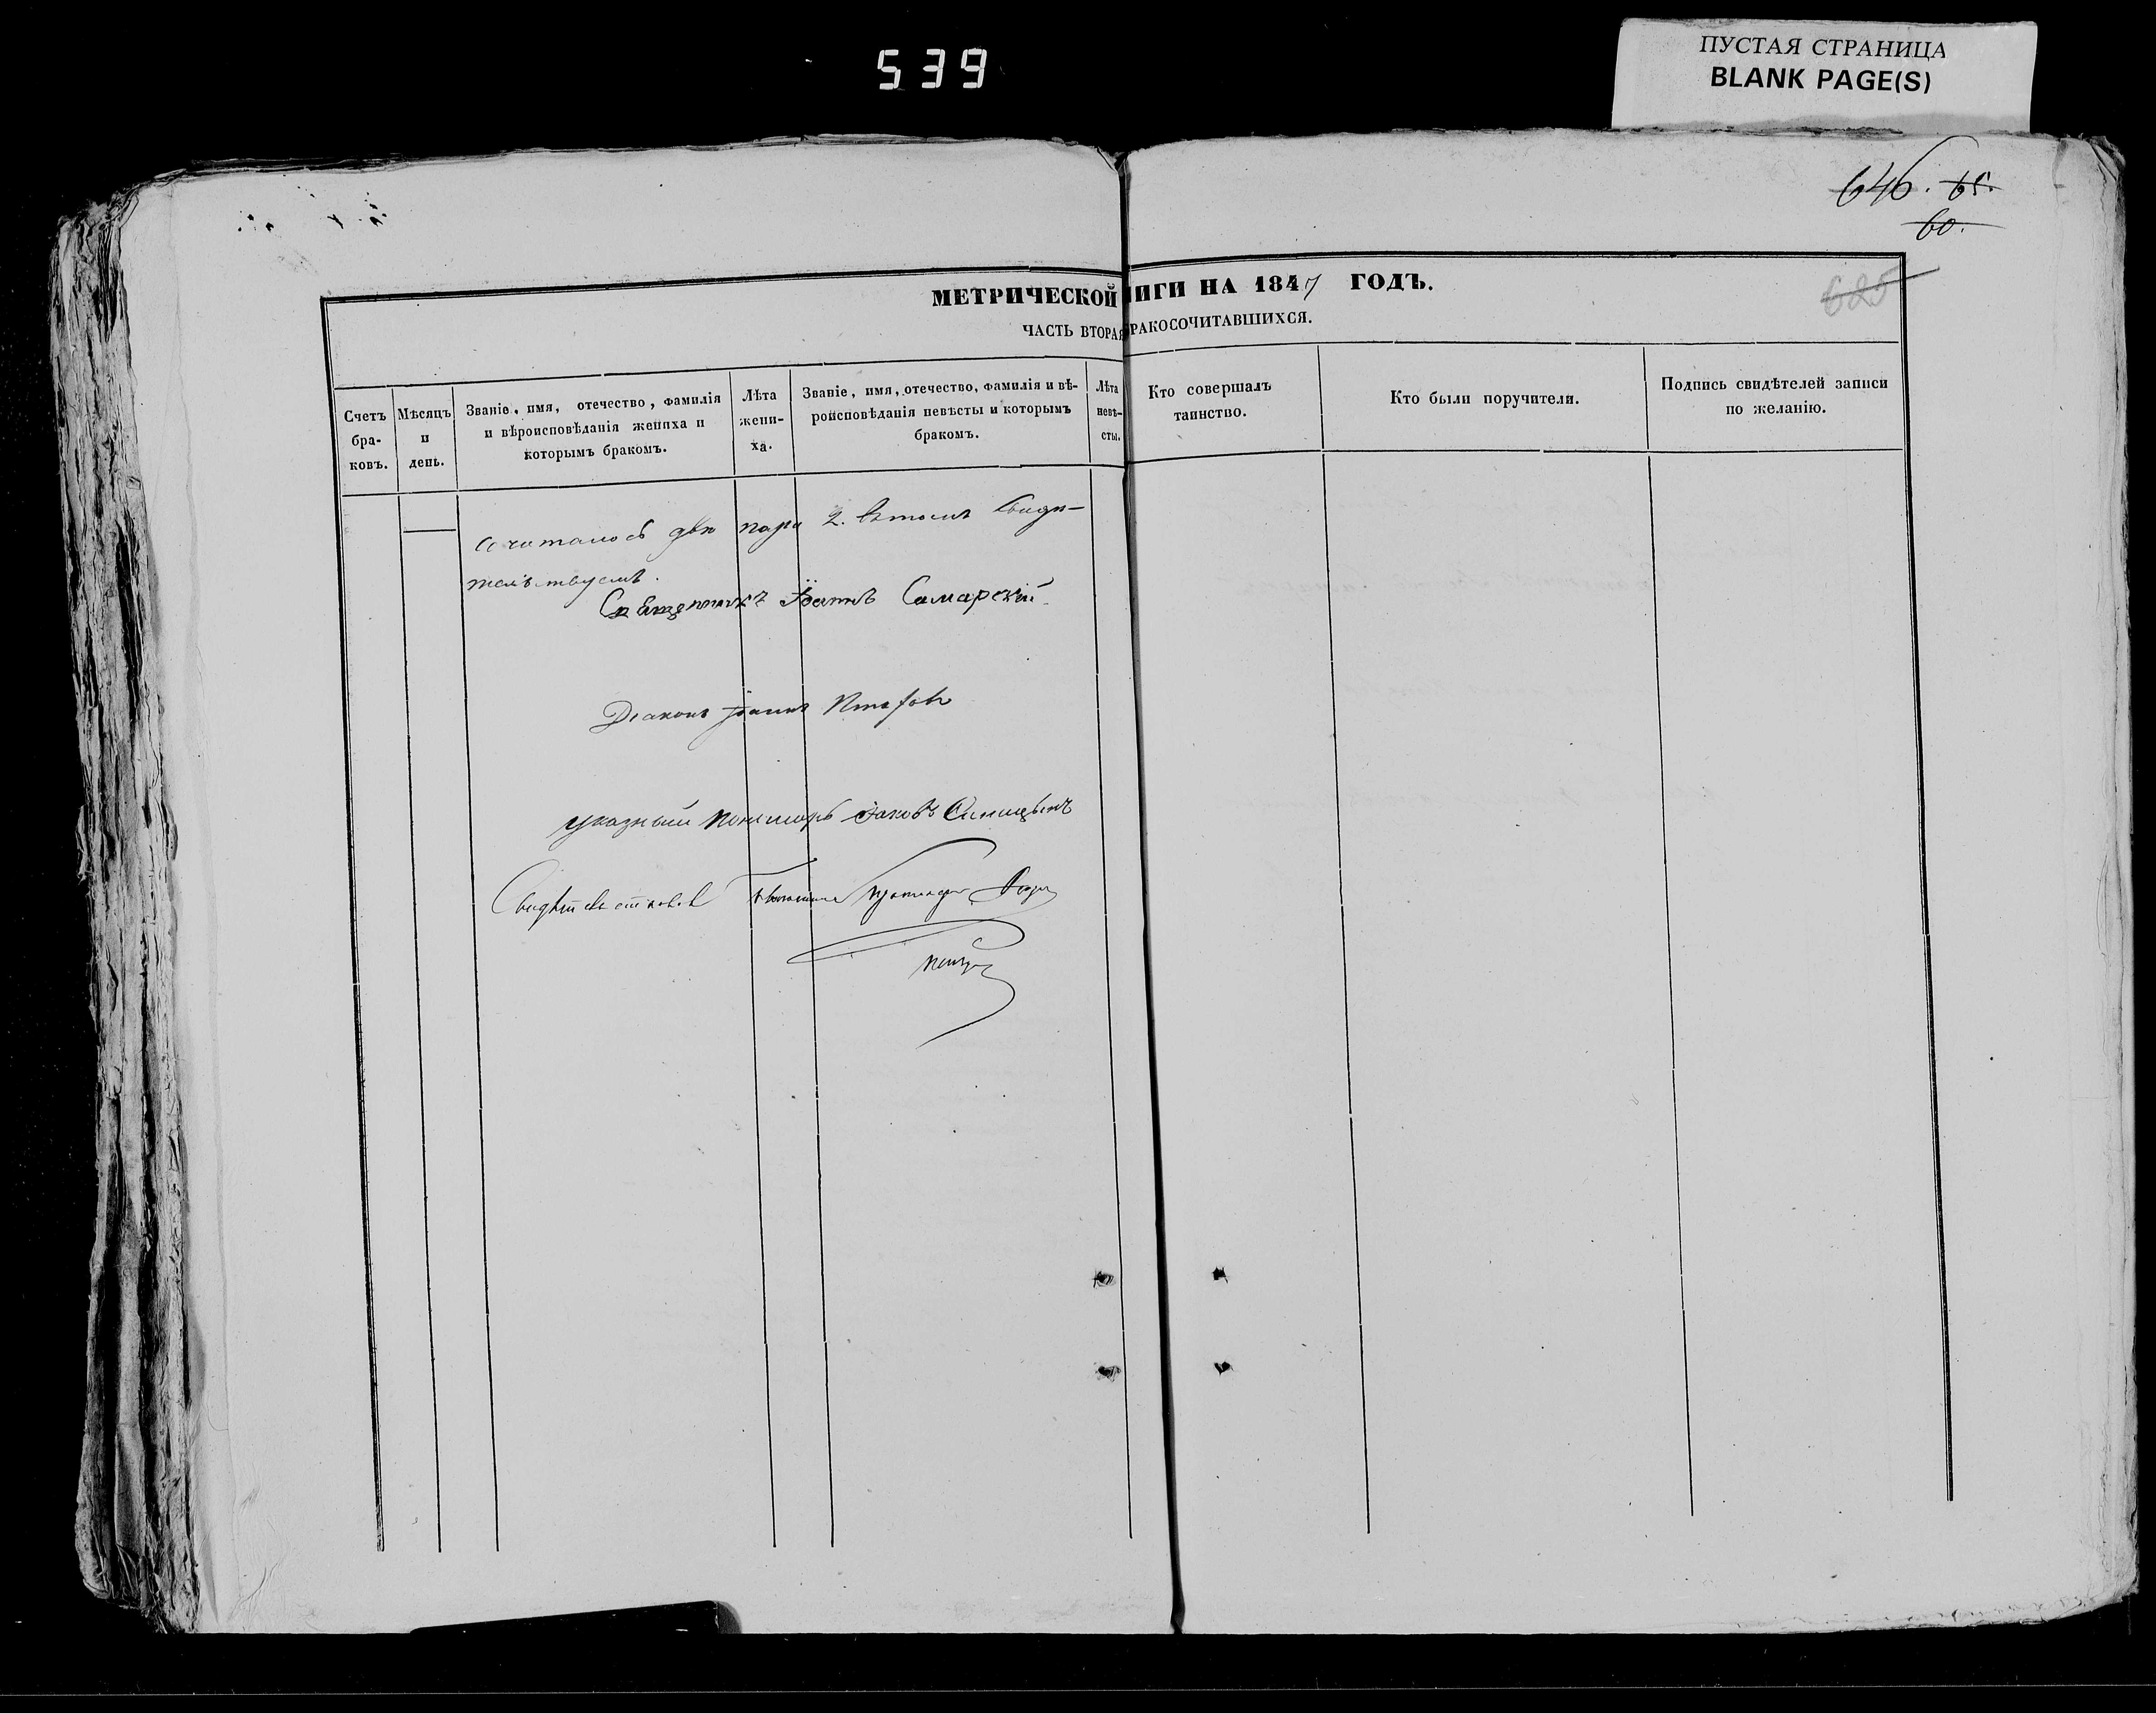 539
ПУСТАЯ СТРАНИЦА
BLANK PAGE(S)
646. 65.
60.
625
МЕТРИЧЕСКОЙ ИГИ НА 1847 ГОДЪ.
ЧАСТЬ ВТОРАЯ РАКОСОЧИТАВШИХСЯ.
Счетъ бра- ковъ.
Мѣсяцъ и день.
Званіе, имя, отечество, фамилія и вѣроисповѣданія жениха и которымъ бракомъ.
Лѣта жени- ха.
Званіе, имя, отечество, фамилія и вѣ- роисповѣданія невѣсты и которымъ бракомъ.
Лѣта невѣ- сты.
Кто совершалъ таинство.
Кто были поручители.
Подпись свидѣтелей записи по желанію.
сочеталось две пары 2. въ томъ свиде-
тельствуемъ.
Священникъ Іоаннъ Самарскій
Діаконъ Іоаннъ
указный пономарь Іаковъ Синицынъ